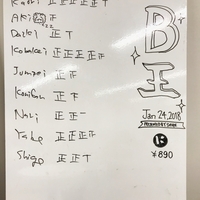 Kaori 正正正正丅
AKi 正
Daiki 正丅
Kobakei 正正正正
Jumpei 正
Kenfun 正
Nari 正正一
Yake 正正正正
Shigo 正正丅
B
王
Jan 24, 2018
に
¥690